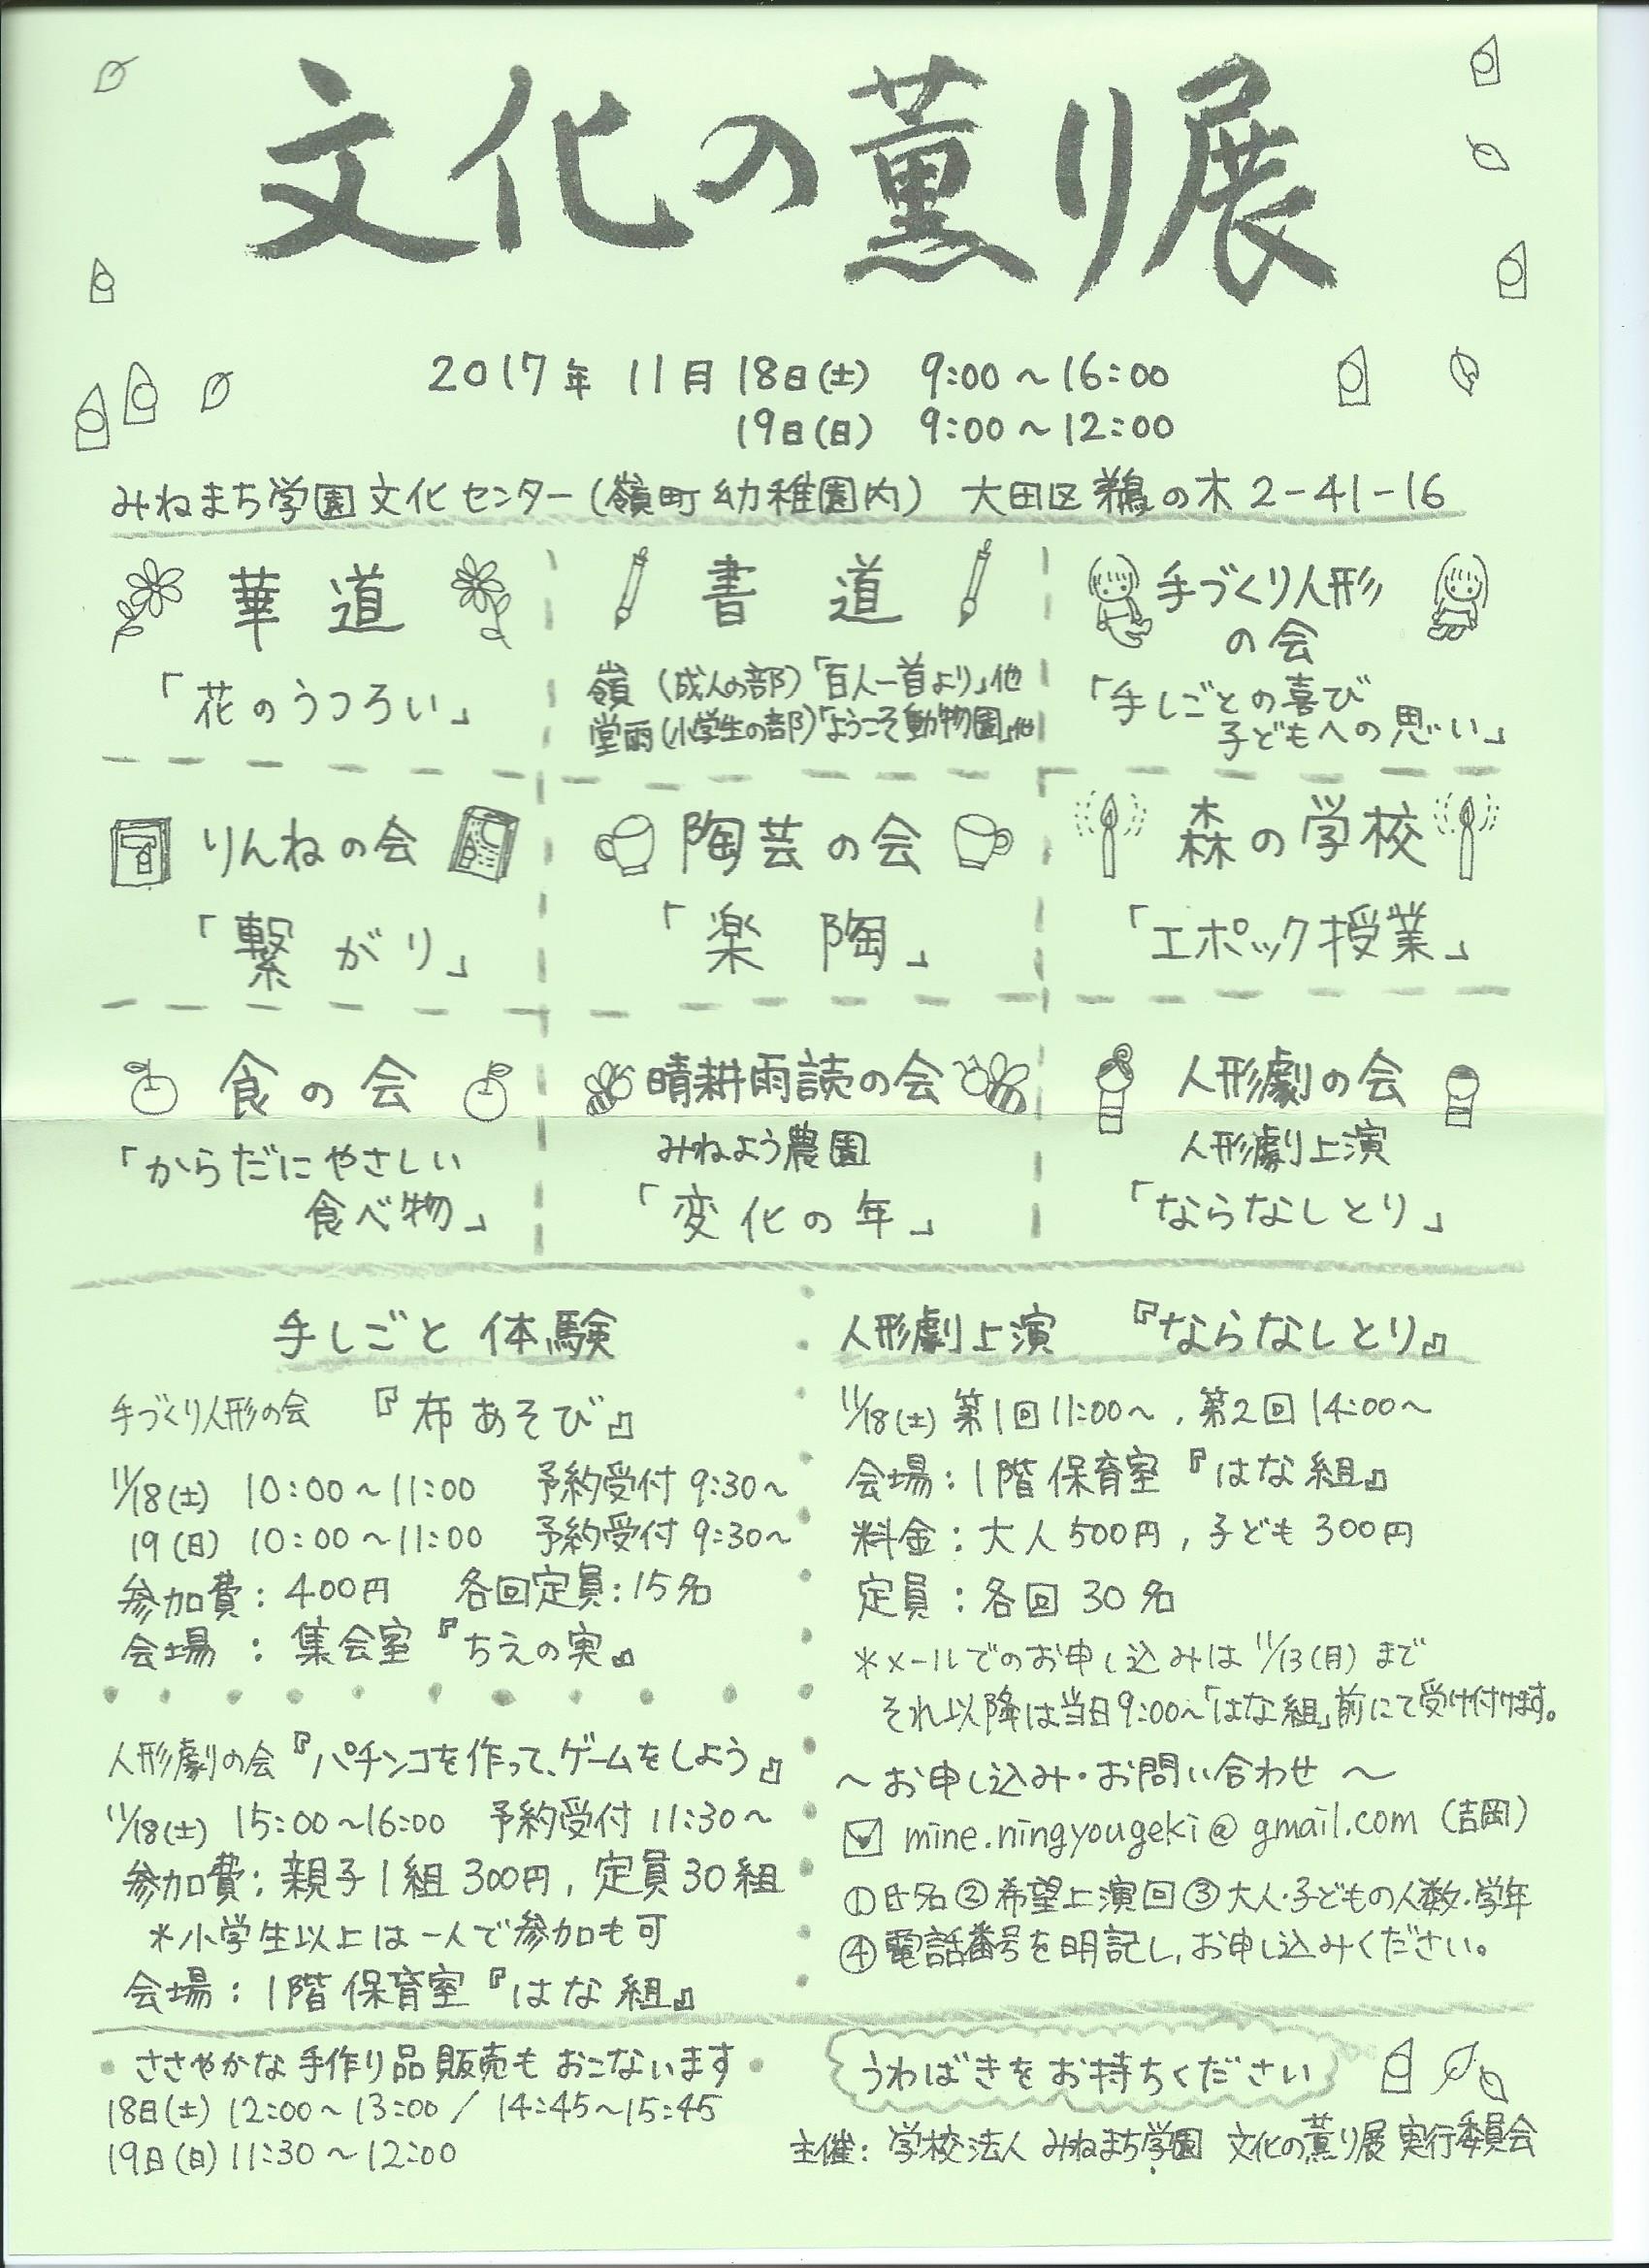 文化の薫り展
2017年 11月 18日(土) 9:00～16:00
19日(日) 9:00～12:00
みねまち学園文化センター(嶺町幼稚園内) 大田区鵜の木2-41-16
華道
「花のうつろい」
書道
嶺 (成人の部)「百人一首より」他
堂雨(小学生の部)「ようこそ動物園」他
手づくり人形
の会
「手しごとの喜び
子どもへの思い」
りんねの会
「繋がり」
陶芸の会
「楽陶」
森の学校
「エポック授業」
食の会
「からだにやさしい
食べ物」
晴耕雨読の会
みねよう農園
「変化の年」
人形劇の会
人形劇上演
「ならなしとり」
手しごと体験
手づくり人形の会 『布あそび』
11/18(土) 10:00～11:00 予約受付 9:30～
19(日) 10:00～11:00 予約受付 9:30～
参加費:400円 各回定員:15名
会場 : 集会室『ちえの実』
人形劇の会『パチンコを作って、ゲームをしよう』
11/18(土) 15:00～16:00 予約受付 11:30～
参加費:親子1組300円, 定員30組
*小学生以上は一人で参加も可
会場:1階保育室『はな組』
人形劇上演 『ならなしとり』
11/18(土) 第1回11:00～, 第2回14:00～
会場:1階保育室『はな組』
料金:大人500円, 子ども300円
定員:各回30名
*メールでのお申し込みは11/13(月)まで
それ以降は当日9:00～「はな組」前にて受け付けます。
～お申し込み・お問い合わせ～
mine.ningyougeki@gmail.com (吉岡)
①氏名②希望上演回③大人・子どもの人数・学年
④電話番号を明記し、お申し込みください。
・ささやかな手作り品販売もおこないます・
18日(土)12:00～13:00/14:45～15:45
19日(日)11:30～12:00
うわばきをお持ちください
主催:学校法人 みねまち学園 文化の薫り展実行委員会